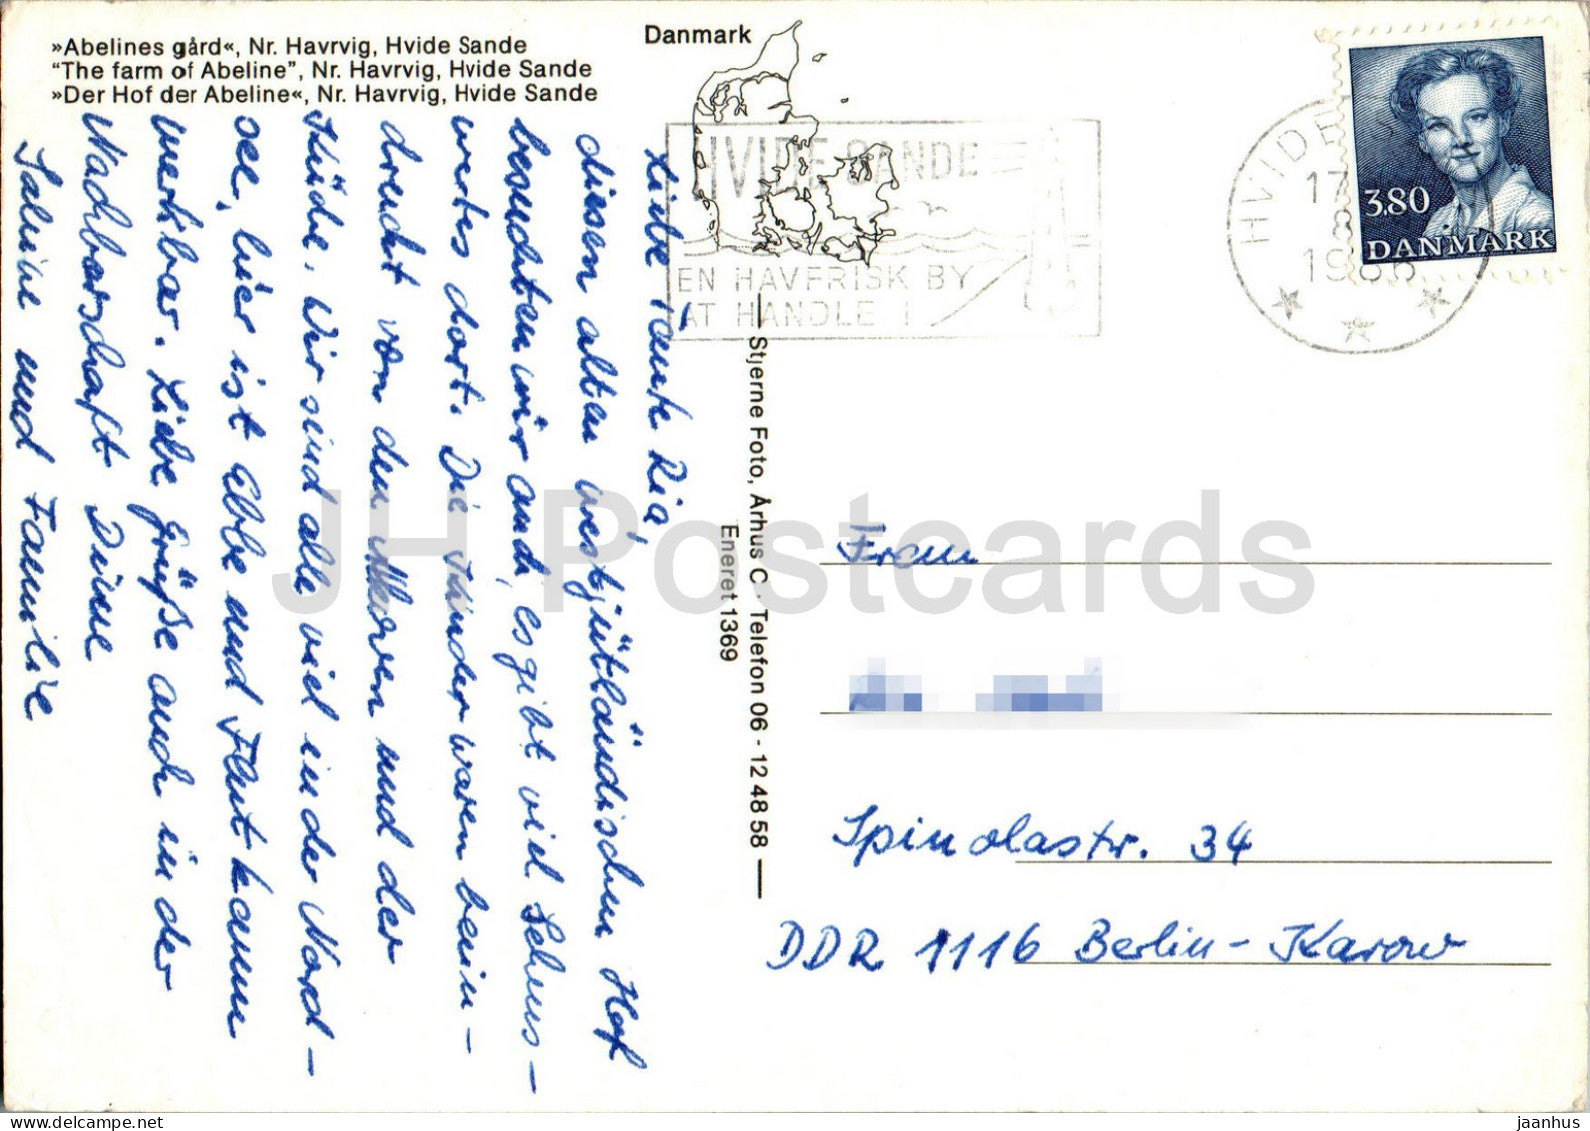 »Abelines gård«, Nr. Havrvig, Hvide Sande
"The farm of Abeline", Nr. Havrvig, Hvide Sande
»Der Hof der Abeline«, Nr. Havrvig, Hvide Sande
Danmark
HVIDE SANDE
EN HAVFRISK BY
AT HANDLE I
HVIDE
17
8
1986
3.80
DANMARK
Liebe Tante Ria,
diesen alten westjütländischen Hof
besuchten wir auch, es gibt viel Sehens-
wertes dort. Die Kinder waren beein-
druckt von den Möwen und der
Küche. Wir sind alle viel in der Nord-
see, hier ist Ebbe und Flut kaum
merkbar. Liebe Grüße auch in der
Nachbarschaft Deine
Sabine und Familie
Stjerne Foto, Århus C · Telefon 06 - 12 48 58
Eneret 1369
Frau
Spinolastr. 34
DDR 1116 Berlin-Karow
JH Postcards
jaanhus